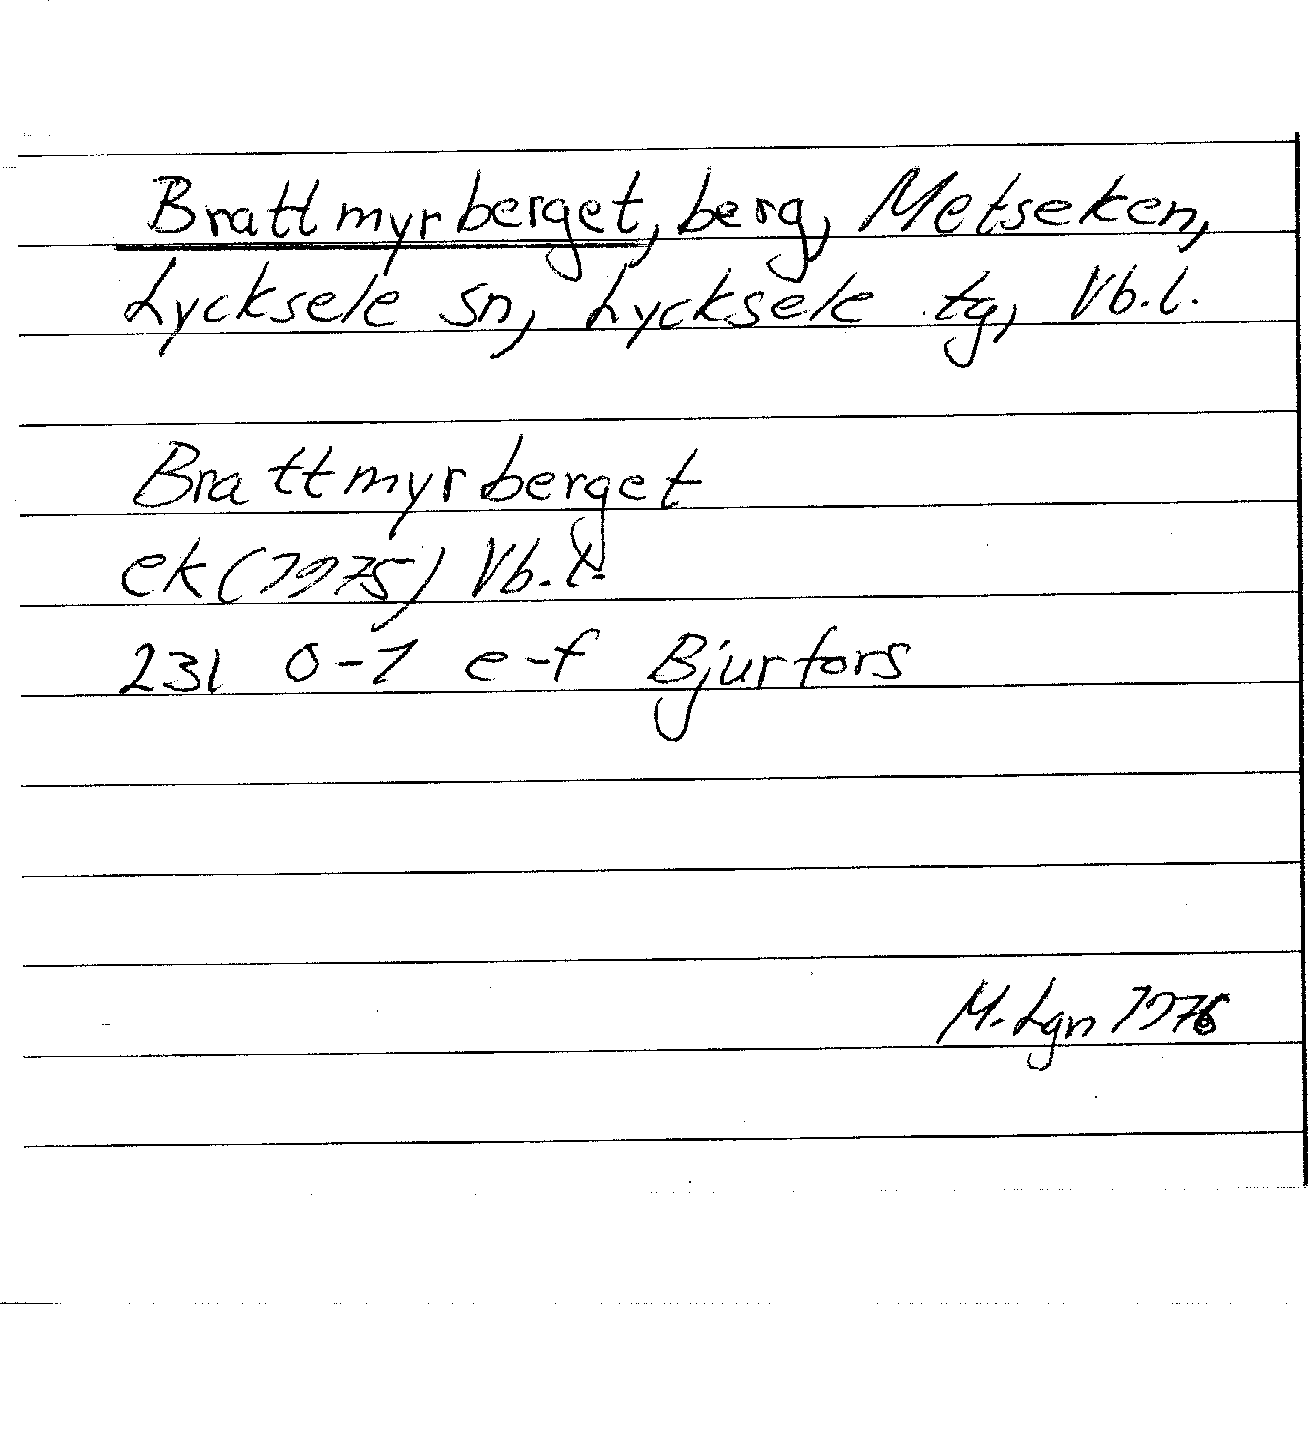 Brattmyrberget, berg, Metseken,
Lycksele sn, Lycksele tg, Vb.l.
Brattmyrberget
ek (1975) Vb.l.
23I 0-1 e-f Bjurfors
M. Lgn 1976